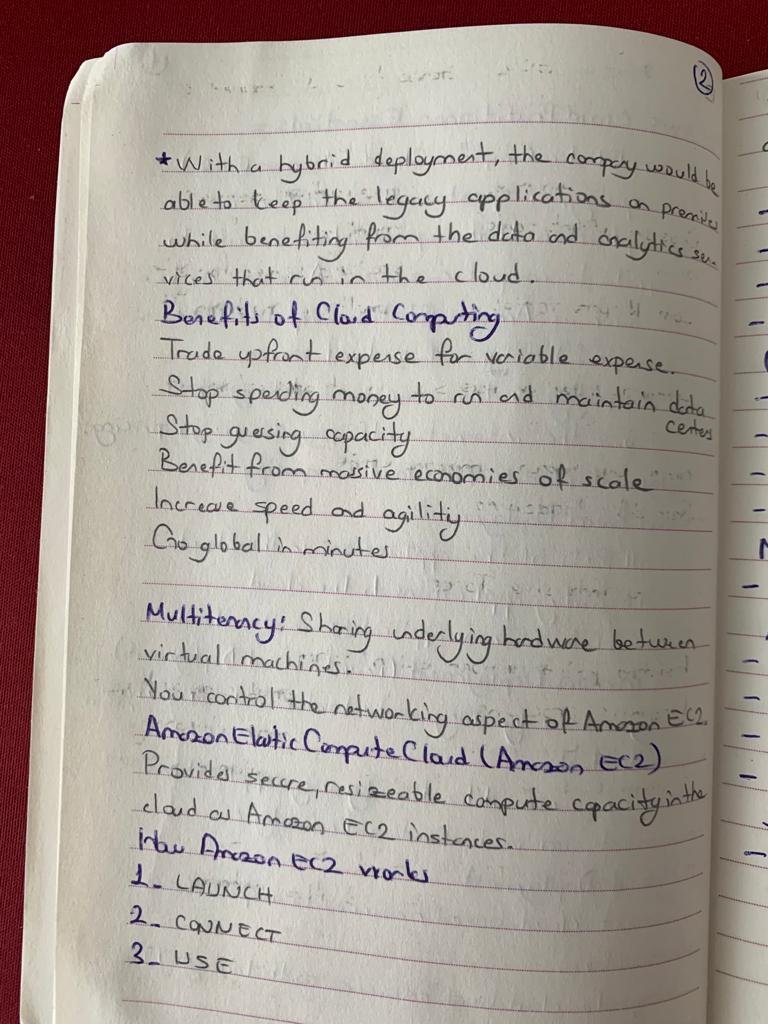 2
* With a hybrid deployment, the company would be
able to keep the legacy applications on premises
while benefiting from the data and analytics ser-
vices that run in the cloud.
Benefits of Cloud Computing
Trade upfront expense for variable expense.
Stop spending money to run and maintain data
centers
Stop guessing capacity
Benefit from massive economies of scale
Increase speed and agility
Go global in minutes
Multitenancy: Sharing underlying hardware between
virtual machines.
You control the networking aspect of Amazon EC2.
Amazon Elastic Compute Cloud (Amazon EC2)
Provides secure, resizeable compute capacity in the
cloud as Amazon EC2 instances.
How Amazon EC2 works
1_ LAUNCH
2_ CONNECT
3_ USE